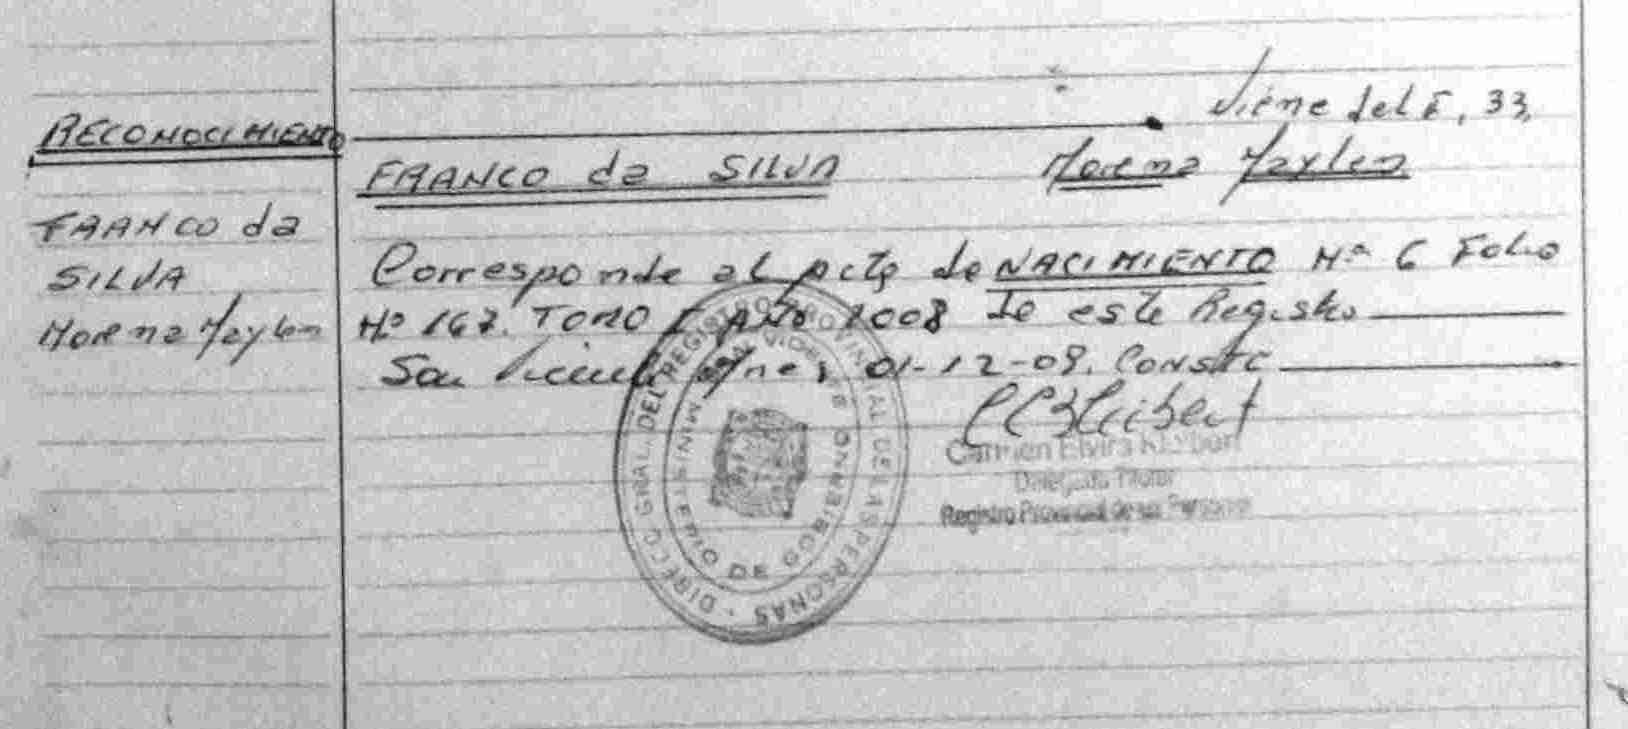 Viene del F. 33,
RECONOCIMIENTO
FRANCO da SILVA Morena Maylen
FRANCO da
SILVA
Morena Maylen
Corresponde al acta de NACIMIENTO Nº 6 Folio
Nº 167. TOMO I Año 2008 de este Registro
San Vicente, Mnes, 01-12-09. CONSTE
Carmen Elvira
Delegado Titular
Registro Provincial de las Personas
DIRECC. GRAL. DEL REGISTRO PROVINCIAL DE LAS PERSONAS
MINISTERIO DE GOBIERNO
SAN VICENTE